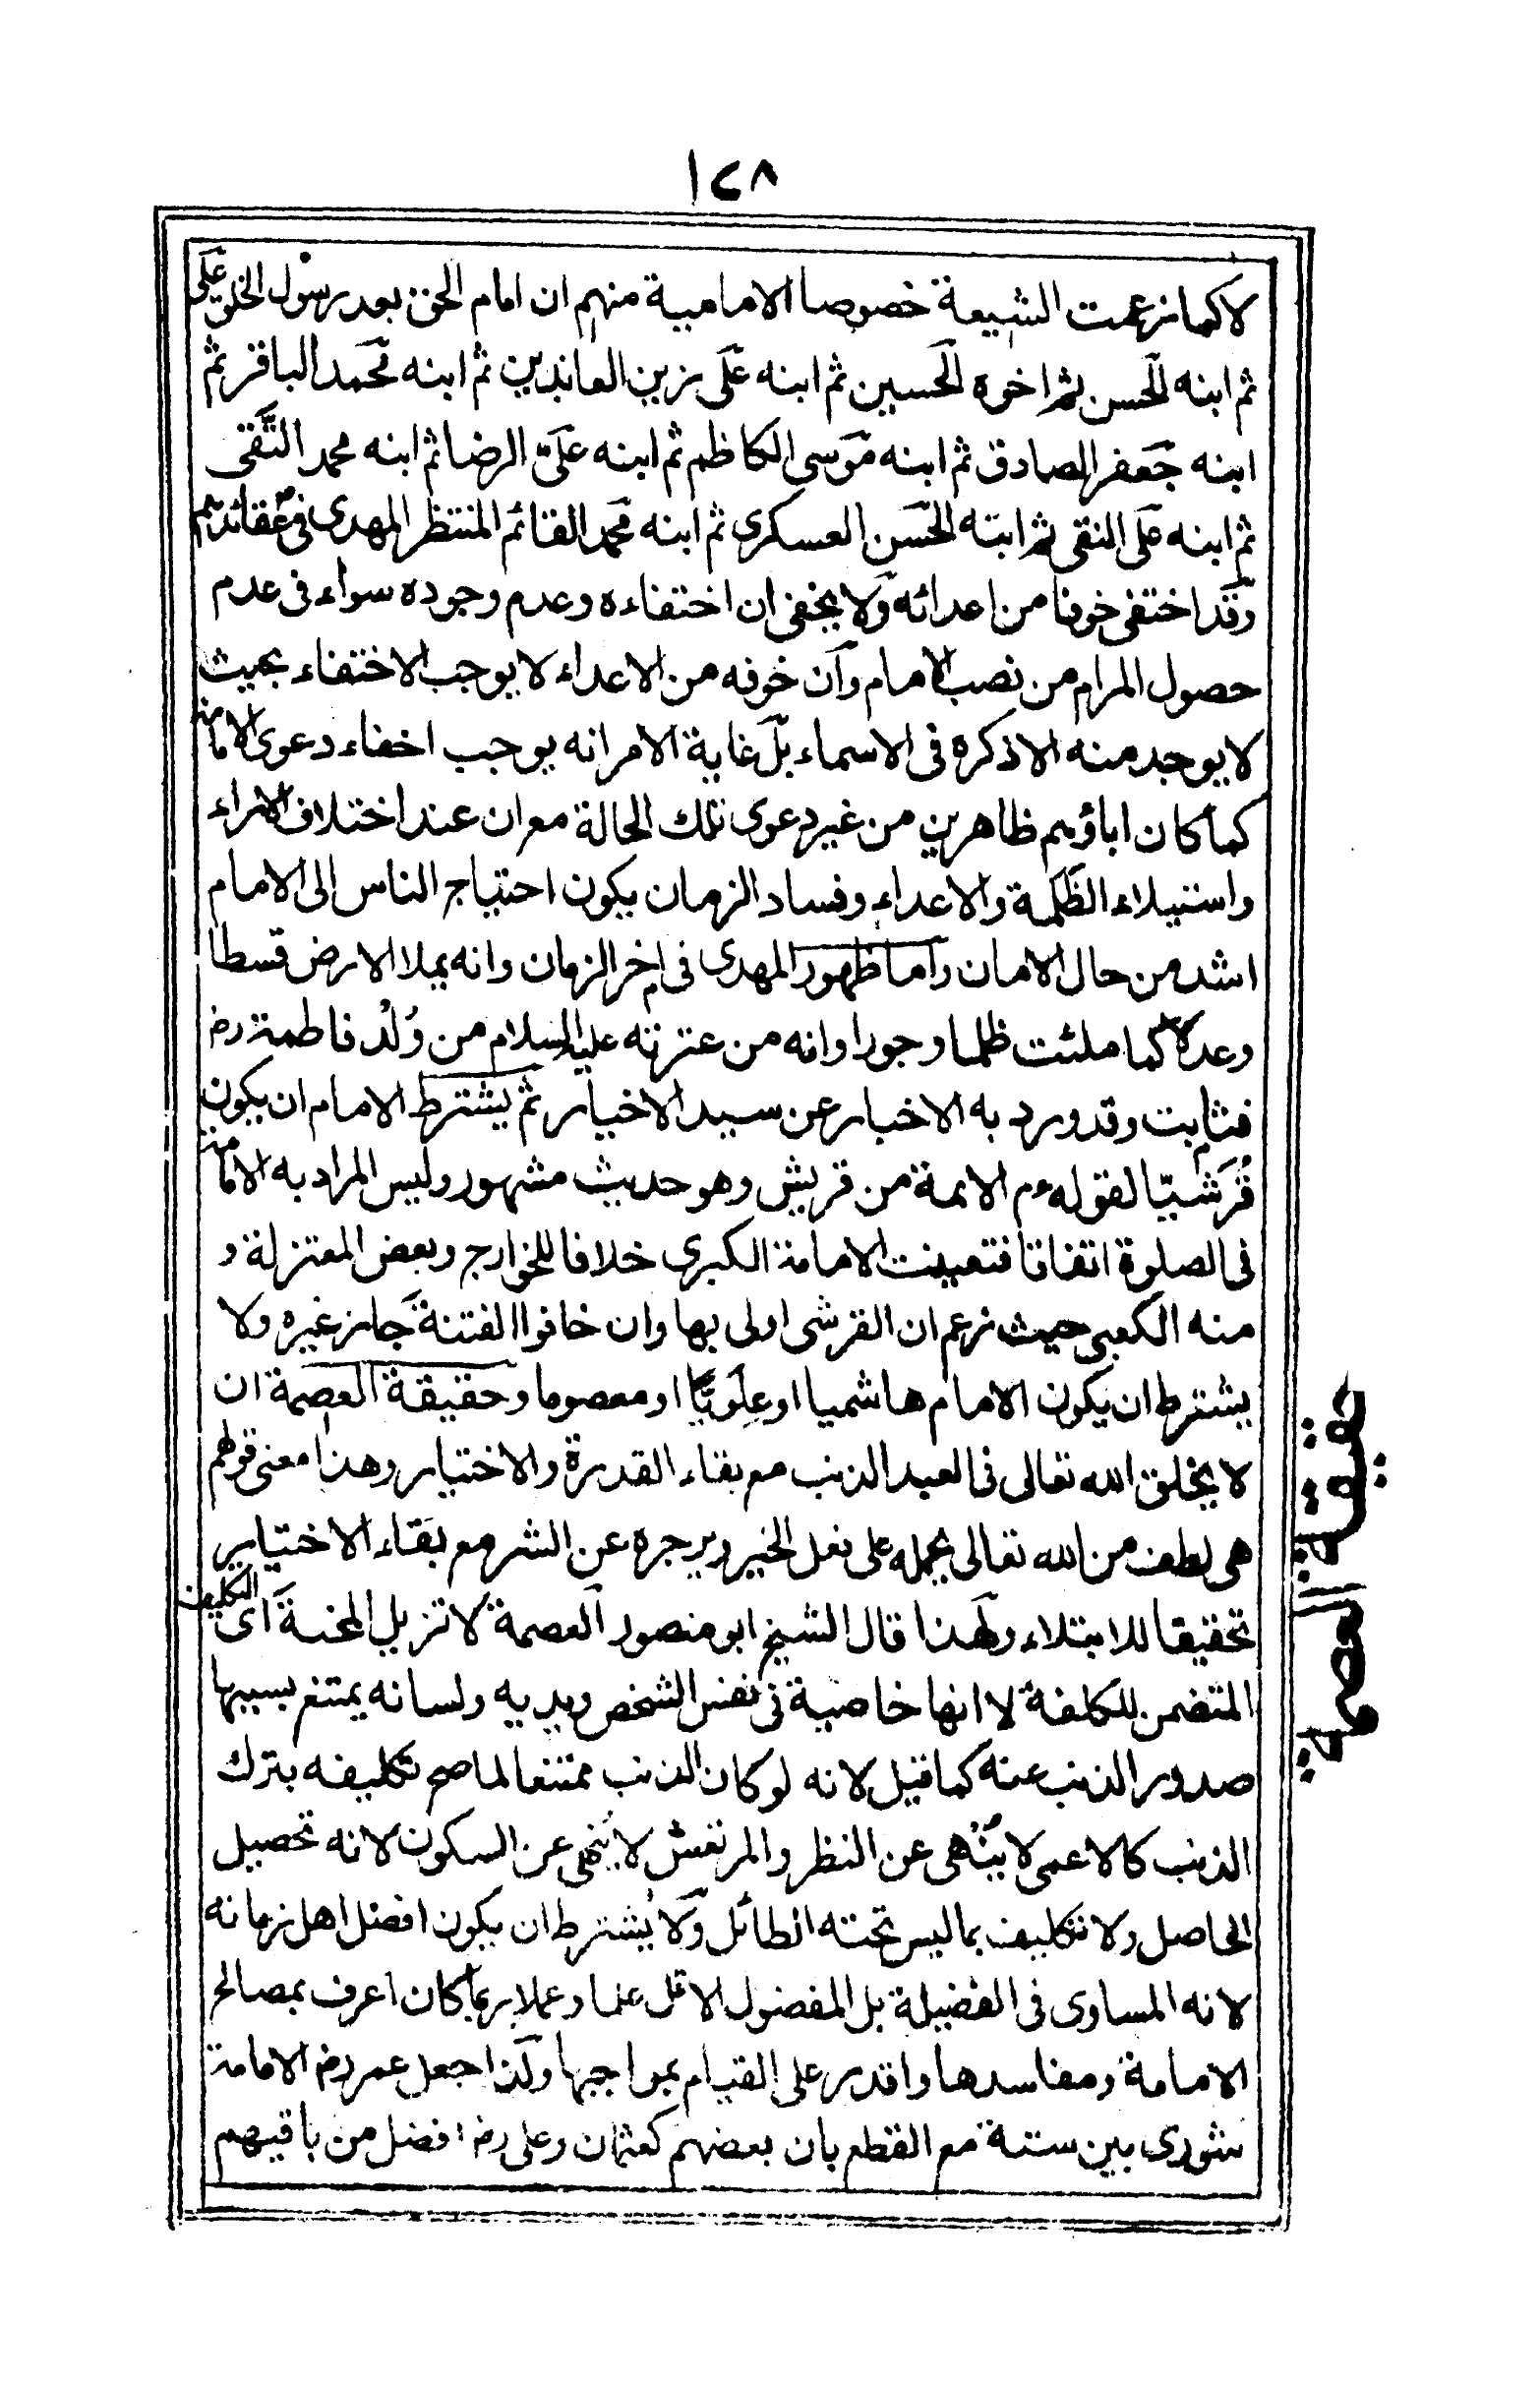 ١٢٨
لا كما زعمت الشيعة خصوصا الامامية منهم ان امام الحق بعد رسول الخلق علي
ثم ابنه الحسن ثم اخوه الحسين ثم ابنه علي زين العابدين ثم ابنه محمد الباقر ثم
ابنه جعفر الصادق ثم ابنه موسى الكاظم ثم ابنه علي الرضا ثم ابنه محمد التقي
ثم ابنه على النقي ثم ابنه الحسن العسكري ثم ابنه محمد القائم المنتظر المهدى في عقائدهم
وقد اختفى خوفا من اعدائه ولا يخفى ان اختفاءه وعدم وجوده سواء فى عدم
حصول المرام من نصب الامام وان خوفه من الاعداء لا يوجب الاختفاء بحيث
لا يوجد منه الا ذكره فى الاسماء بل غاية الامر انه يوجب اخفاء دعوى الامامة
كما كان اباؤهم ظاهرين من غير دعوى تلك الحالة مع ان عند اختلاف الاراء
واستيلاء الظلمة والاعداء وفساد الزمان يكون احتياج الناس الى الامام
اشد من حال الامان واما ظهور المهدى فى اخر الزمان وانه يملا الارض قسطا
وعدلا كما ملئت ظلما وجورا وانه من عترته عليه السلام من ولد فاطمة رض
فثابت وقد ورد به الاخبار عن سيد الاخيار ثم يشترط الامام ان يكون
قرشيّا لقوله عم الائمة من قريش وهو حديث مشهور وليس المراد به الامامة
فى الصلوة اتفاقا فتعينت الامامة الكبرى خلافا للخوارج وبعض المعتزلة و
منه الكعبى حيث زعم ان القرشى اولى بها وان خافوا الفتنة جاز غيره ولا
يشترط ان يكون الامام هاشميا او علويّا او معصوما وحقيقة العصمة ان
لا يخلق الله تعالى فى العبد الذنب مع بقاء القدرة والاختيار وهذا معنى قولهم
هى لطف من الله تعالى يحمله على فعل الخير ويزجره عن الشر مع بقاء الاختيار
تحقيقا للابتلاء ولهذا قال الشيخ ابو منصور العصمة لا تزيل المحنة اى التكليف
المتضمن للكلفة لا انها خاصية فى نفس الشخص وبديه ولسانه يمتنع بسببها
صدور الذنب عنه كما قيل لانه لو كان الذنب ممتنعا لما صح تكليفه بترك
الذنب كالاعمى لا ينهى عن النظر والمرتعش لا ينهى عن السكون لانه تحصيل
الحاصل ولا تكليف بما ليس تحته الطائل ولا يشترط ان يكون افضل اهل زمانه
لانه المساوى فى الفضيلة بل المفضول الاقل علما وعملا ربما كان اعرف بمصالح
الامامة ومفاسدها واقدر على القيام بمواجبها ولذا جعل عمر رض الامامة
شورى بين ستة مع القطع بان بعضهم كعثمان وعلى رض افضل من باقيهم
حقيقة العصمة